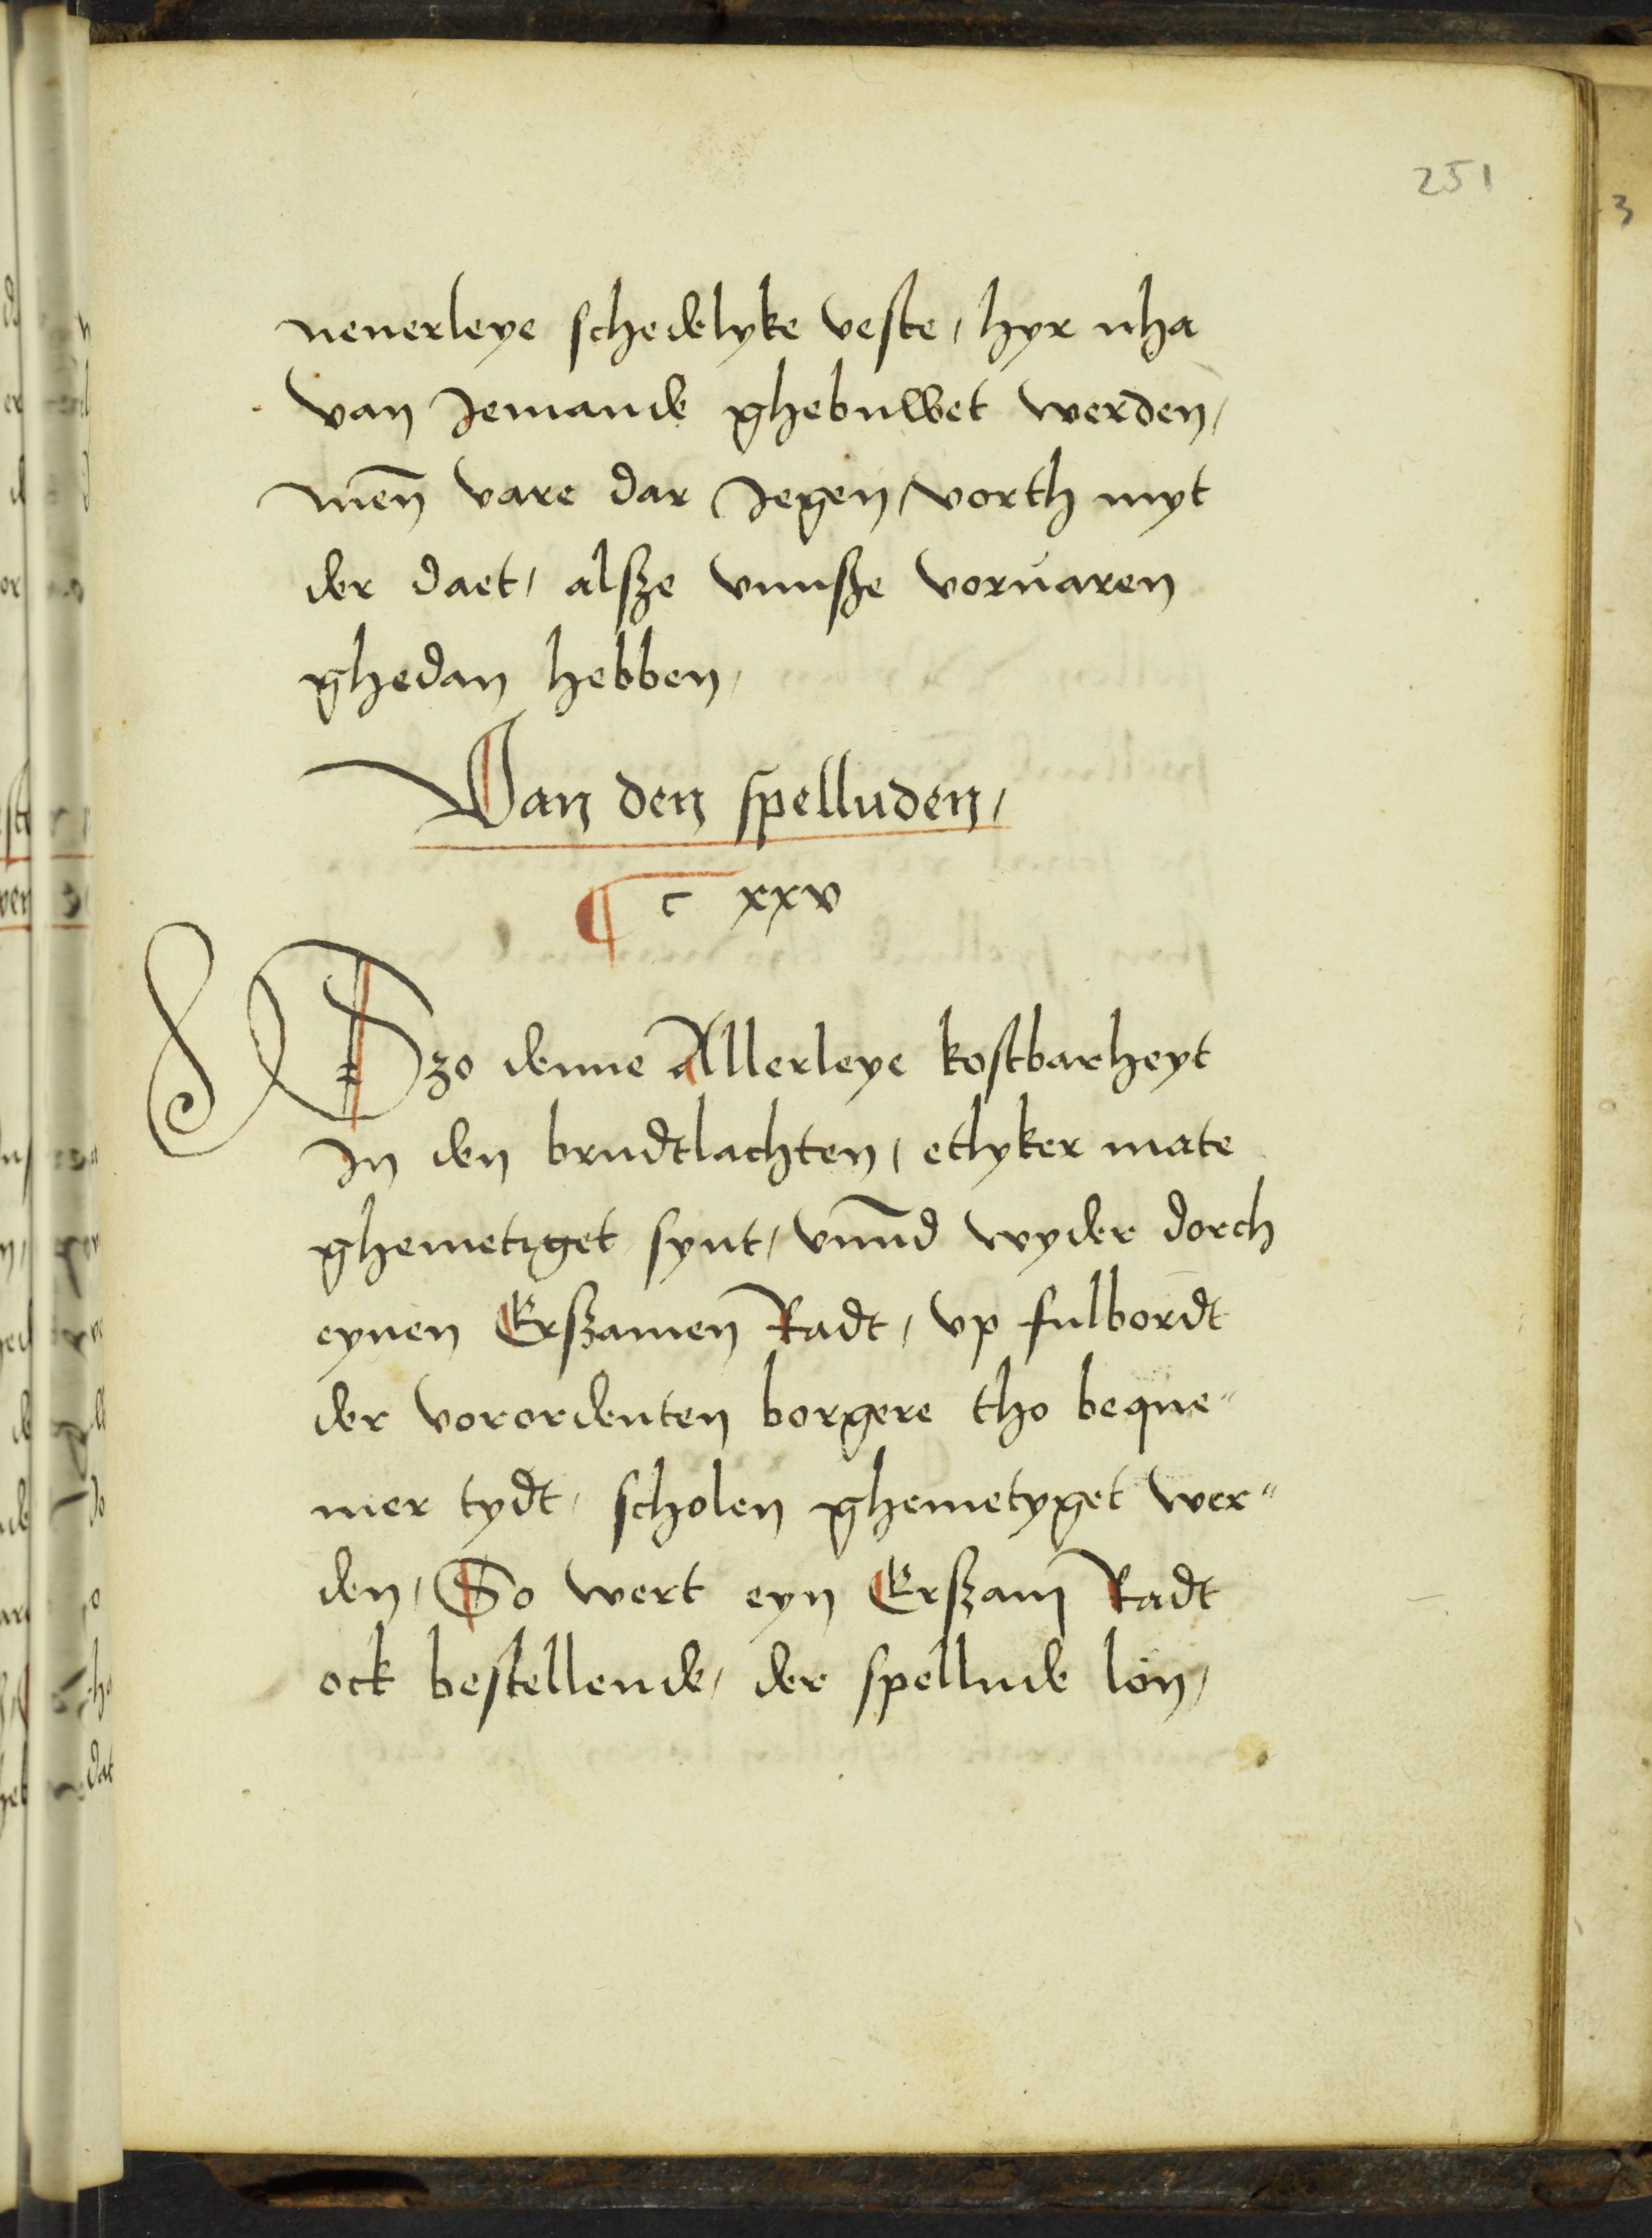 251
nenerleye schedelyke veste, hyr nha
van Jemande ghebuwet werden,
men̄ vare dar Jegen, vorth myt
der daet, alsze vnnsze voruaren
ghedan hebben,
Van den spelluden,
¶ c xxv
Szo denne Allerleye kostbarheyt
In den brudtlachten, etlyker mate
ghemetiget synt, vnnd wyder dorch
eynen Erszamen Radt, vp fulbordt
der vorordenten borgere tho beque"
mer tydt, scholen ghemetyget wer"
den, So wert eyn Erszam Radt
ock bestellende, der spellude lon,